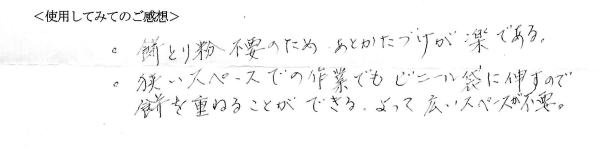 <使用してみてのご感想>
。餅とり粉不要のため あとかたづけが楽である。
。狭いスペースでの作業でもビニール袋に伸すので
餅を重ねることができる。よって広いスペースが不要。